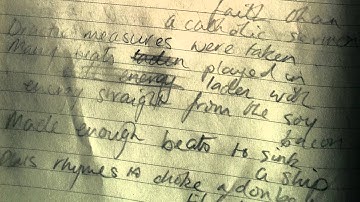 faith than
a catholic sermon
Drastic measures were taken
Many beats played in
energy laden with
energy straight from the soy
bacon
Made enough beats to sink
a ship
rhymes to choke a donkey